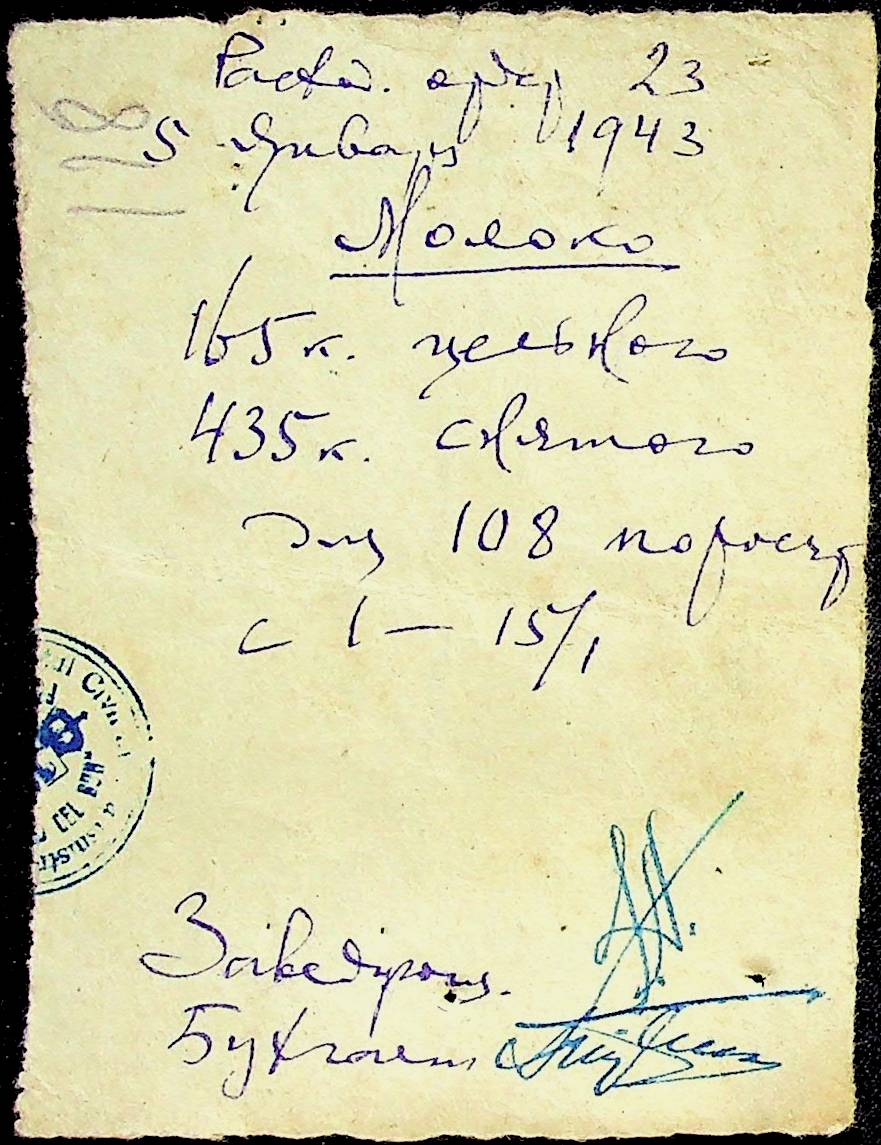 Расход. ордер 23
128
5 Января 1943
Молоко
165 к. цельного
435 к. снятого
для 108 поросят
с 1 — 15/1
Заведующ.
Бухгалт
Civil
CEL